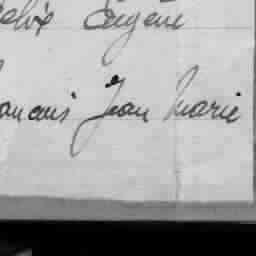 Félix Eugène
François Jean Marie